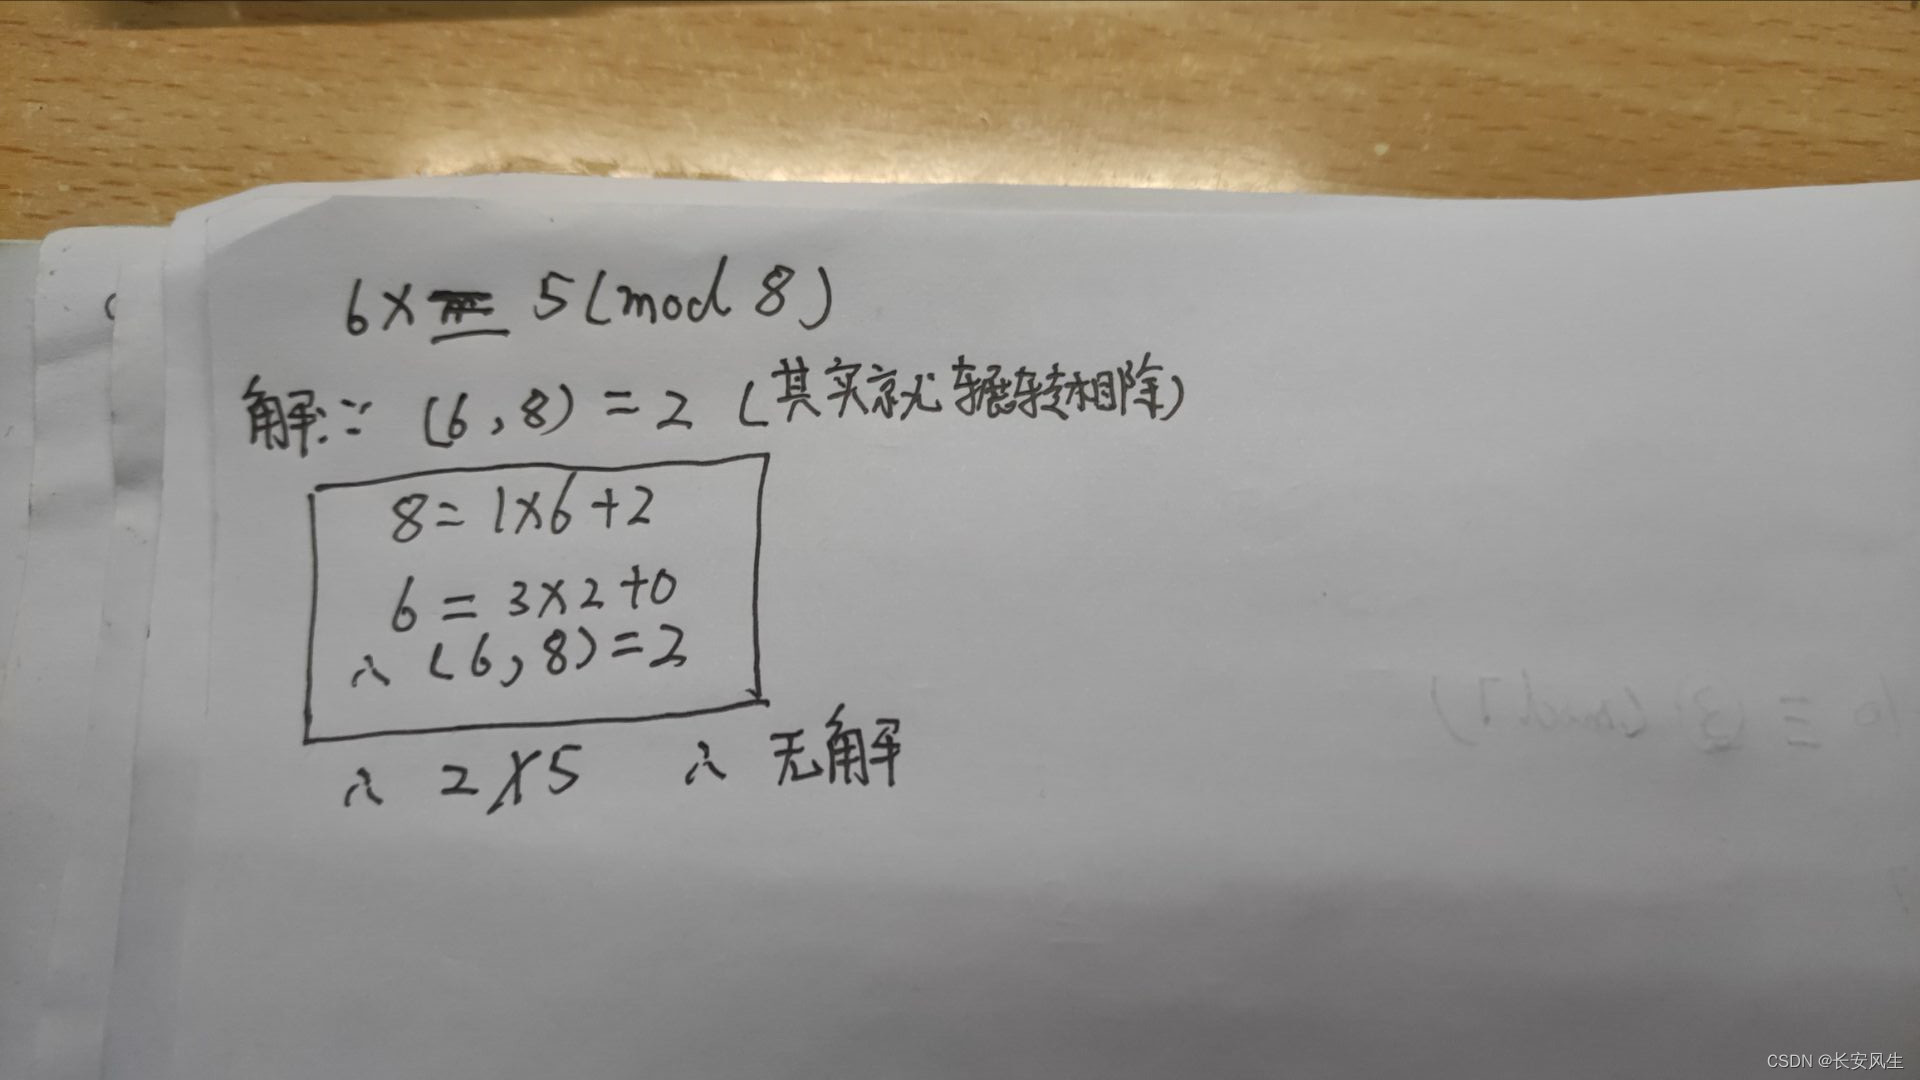 6x ≡ 5 (mod 8)
解:∵ (6,8) = 2 (其实就辗转相除)
8 = 1×6+2
6 = 3×2+0
∴ (6,8)=2
∴ 2∤5 ∴ 无解
CSDN @长安风生